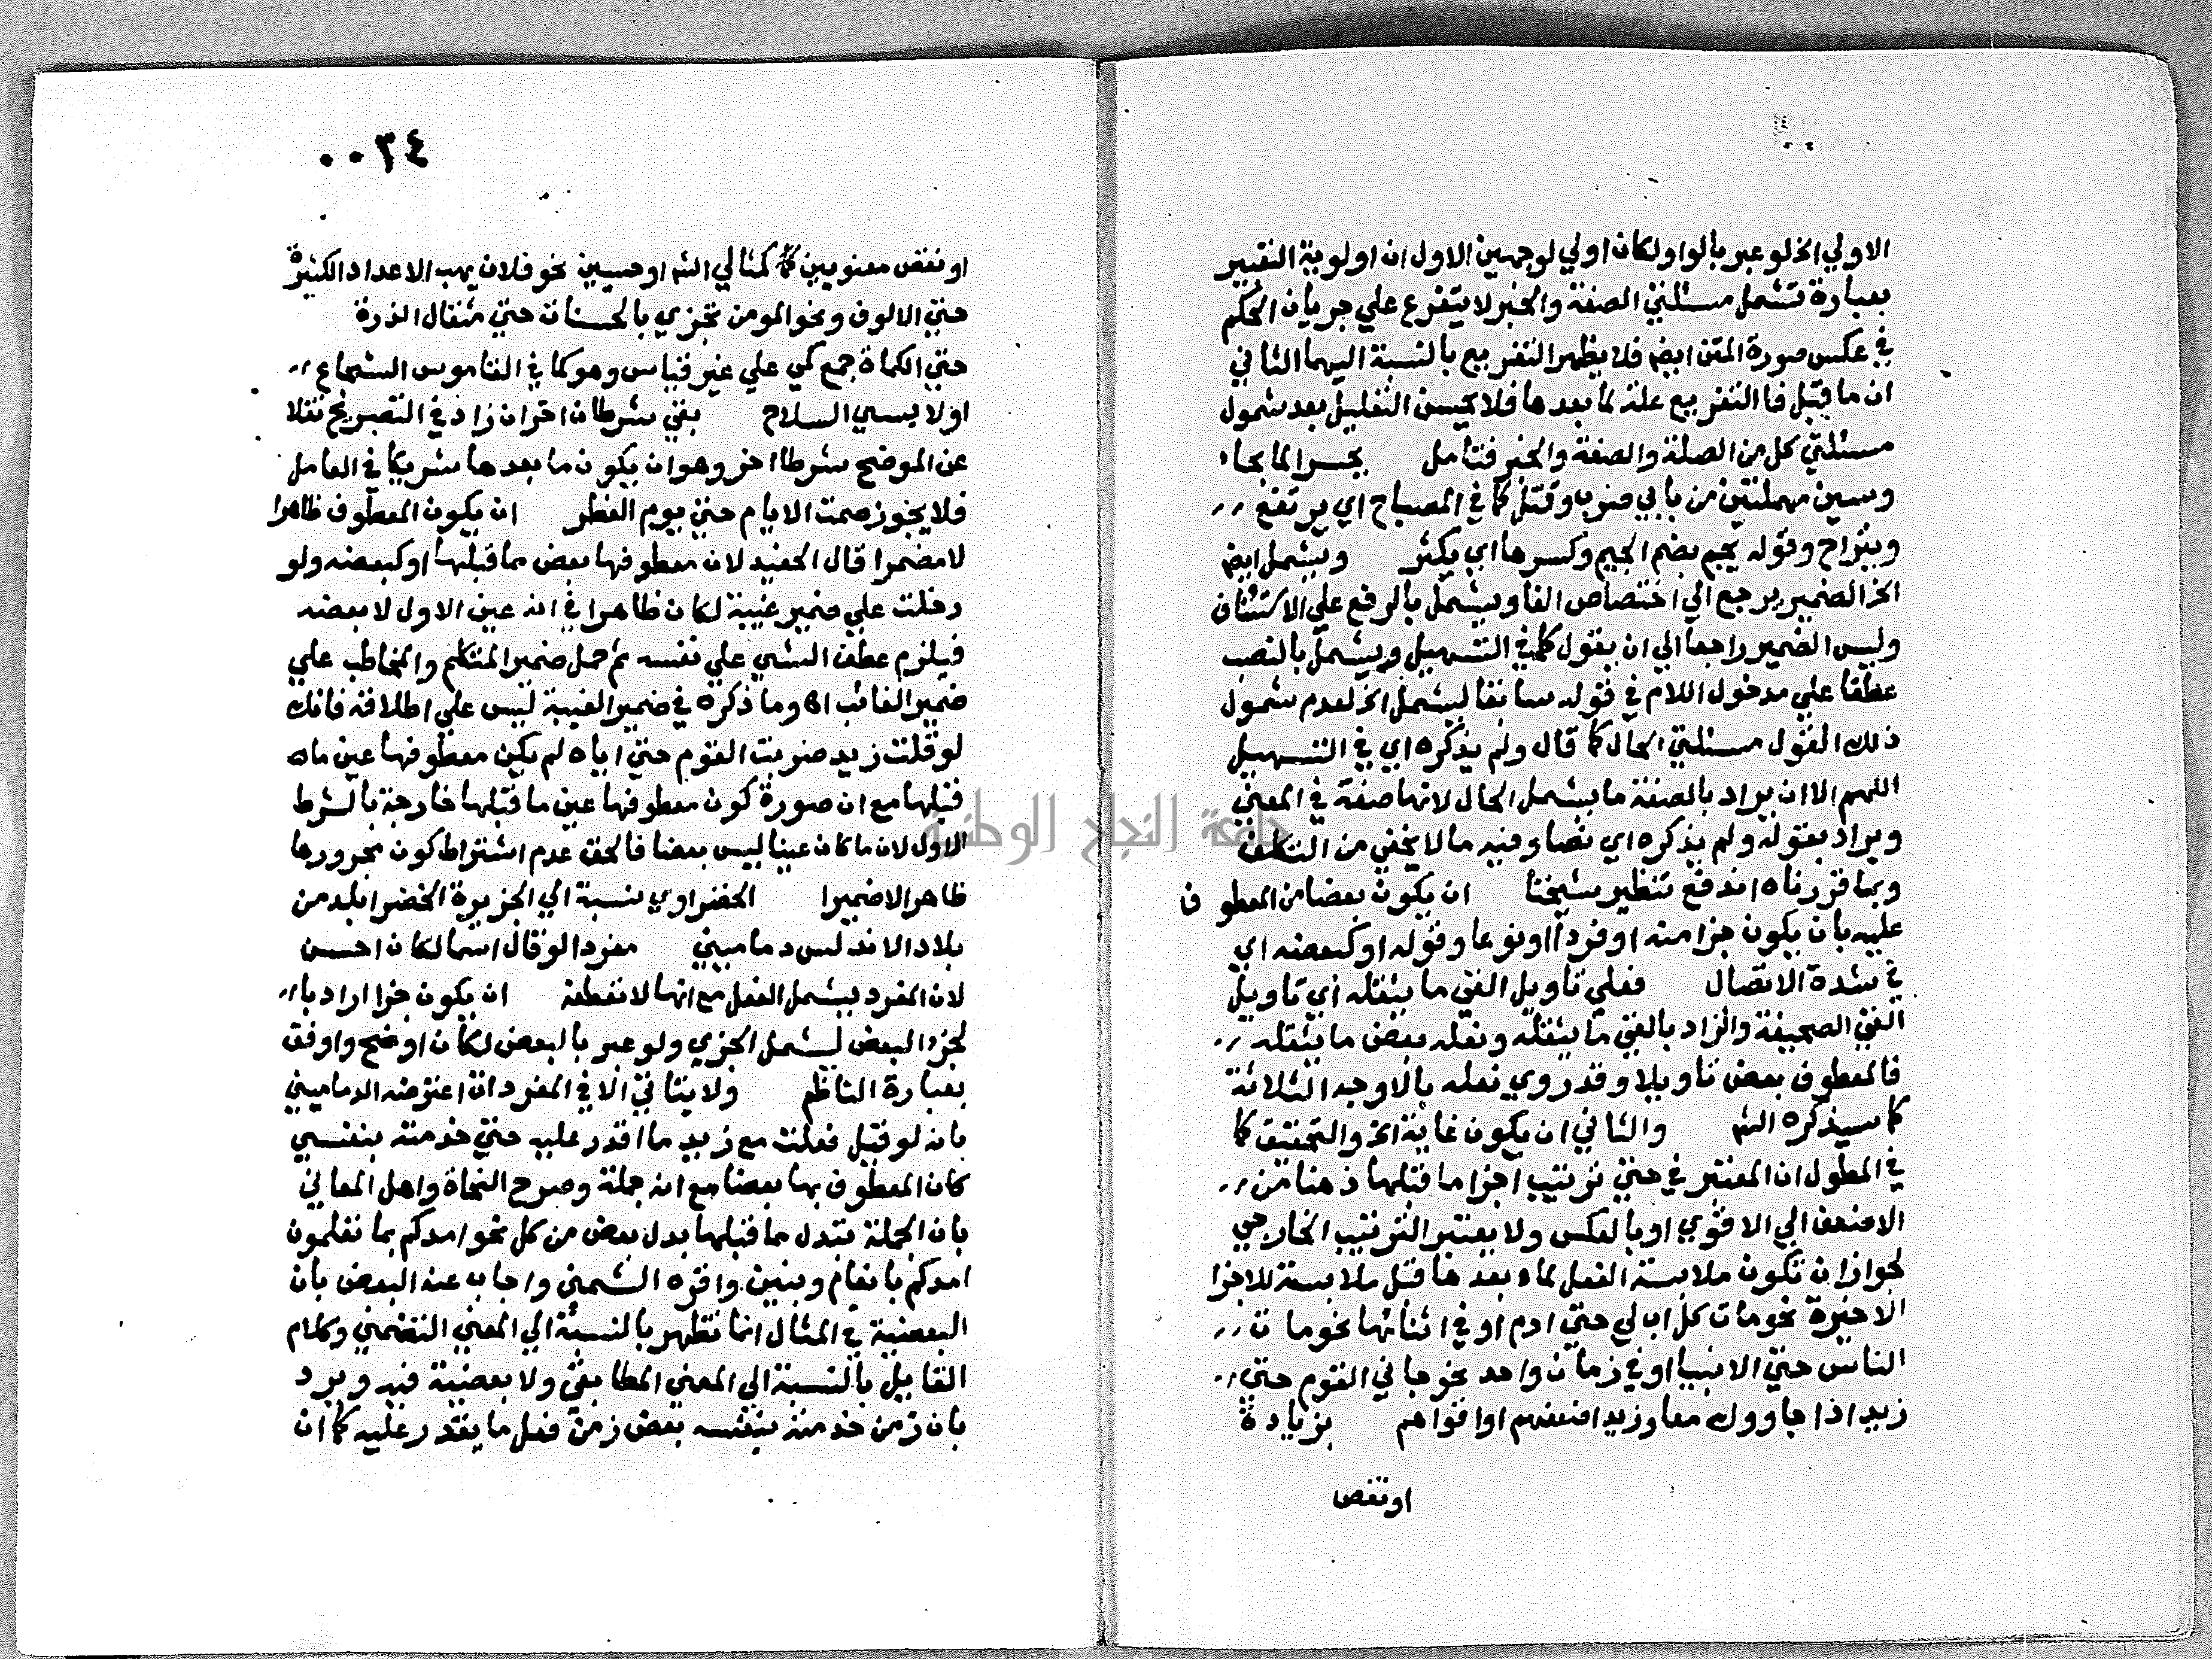 الاولي الخ لو عبر بالواو لكان اولي لوجهين الاول ان اولوية التعبير
بعبارة تشمل مسئلتي الصفة والخبر لا يتفرع علي جريان الحكم
في عكس صورة المتن ايضم فلا يظهر التفريع بالنسبة اليهما الثاني
ان ما قبل فا التفريع علة لما بعدها فلا يحسن التعليل بعد شمول
مسئلتي كل من الصلة والصفة والخبر فتامل يجسر الما بجاء
وسين مهملتين من بابي ضرب وقتل كما في المصباح اي يرتفع
وينزاح وقوله يجم بضم الجيم وكسرها اي يكثر ويشمل ايضم
الخ الضمير يرجع الي اختصاص الفا ويشمل بالرفع علي الاستئناف
وليس الضمير راجعا الي ان يقول كما في التسهيل ويشمل بالنصب
عطفا علي مدخول اللام في قوله سابقا ليشمل الخ لعدم شمول
ذلك القول مسئلتي الحال كما قال ولم يذكره اي في التسهيل
اللهم الا ان يراد بالصفة ما يشمل الحال لانها صفة في المعني
ويراد بقوله ولم يذكره اي نصا وفيه ما لا يخفي من التكلف
وبما قررناه اندفع تنظير شيخنا ان يكون بعضا من المعطوف
عليه بان يكون جزا منه او فردا او نوعا وقوله او كبعضه اي
في شدة الاتصال فعلي تاويل القي ما يثقله اي تاويل
القي الصحيفة والزاد بالقي ما يثقله ونعله بعض ما يثقله
فالمعطوف بعض تاويلا وقد روي نعله بالاوجه الثلاثة
كما سيذكره الشم والثاني ان يكون غاية الخ والتحقيق كما
في المطول ان المعتبر في حتي ترتيب اجزا ما قبلها ذهنا من
الاضعف الي الاقوي او بالعكس ولا يعتبر الترتيب الخارجي
لجواز ان تكون ملابسة الفعل لما بعدها قبل ملابسة للاجزا
الاخيرة نحو مات كل اب لي حتي ادم او في اثنائها نحو مات
الناس حتي الانبيا او في زمان واحد نحو جاني القوم حتي
زيد اذا جاووك معا وزيد اضعفهم او اقواهم بزيادة
او نقص
٠٠٣٤
او نقص معنويين كمثالي الشم او حسيين نحو فلان يهب الاعداد الكثيرة
حتي الالوف ونحو المومن يجزي بالحسنات حتي مثقال الذرة
حتي الكماة جمع كمي علي غير قياس وهو كما في القاموس الشجاع
او لابس السلاح بقي شرطان اخران زاد في التصريح نقلا
عن الموضح شرطا اخر وهو ان يكون ما بعدها شريكا في العامل
فلا يجوز صمت الايام حتي يوم الفطر ان يكون المعطوف ظاهرا
لا مضمرا قال الحفيد لان معطوفها بعض مما قبلها او كبعضه ولو
دخلت علي ضمير غيبة لكان ظاهرا في انه عين الاول لا بعضه
فيلزم عطف الشي علي نفسه ثم حمل ضمير المتكلم والمخاطب علي
ضمير الغائب اه وما ذكره في ضمير الغيبة ليس علي اطلاقه فانك
لو قلت زيد ضربت القوم حتي اياه لم يكن معطوفها عين ما
قبلها مع ان صورة كون معطوفها عين ما قبلها خارجة بالشرط
الاول لان ما كان عينا ليس بعضا فالحق عدم اشتراط كون مجرورها
ظاهرا لا ضميرا الخضراوي نسبة الي الجزيرة الخضرا بلد من
بلاد الاندلس دماميني مفردا لو قال اسما لكان احسن
لان المفرد يشمل الفعل مع انها لا تعطفه ان يكون جزا اراد با
لجزء البعض ليشمل الجزي ولو عبر بالبعض لكان اوضح واوفق
بعبارة الناظم ولا يتاتي الا في المفردات اعترضه الدماميني
بانه لو قيل فعلت مع زيد ما اقدر عليه حتي خدمته بنفسي
كان المعطوف بها بعضا مع انه جملة وصرح النحاة واهل المعاني
بان الجملة تبدل مما قبلها بدل بعض من كل نحو امدكم بما تعلمون
امدكم بانعام وبنين واقره الشمني واجاب عنه البعض بان
البعضية في المثال انما تظهر بالنسبة الي المعني التضمني وكلام
القايل بالنسبة الي المعني المطابقي ولا بعضية فيه ويرد
بان زمن خدمته بنفسه بعض زمن فعل ما يقدر عليه كما ان
جامعة النجاح الوطنية